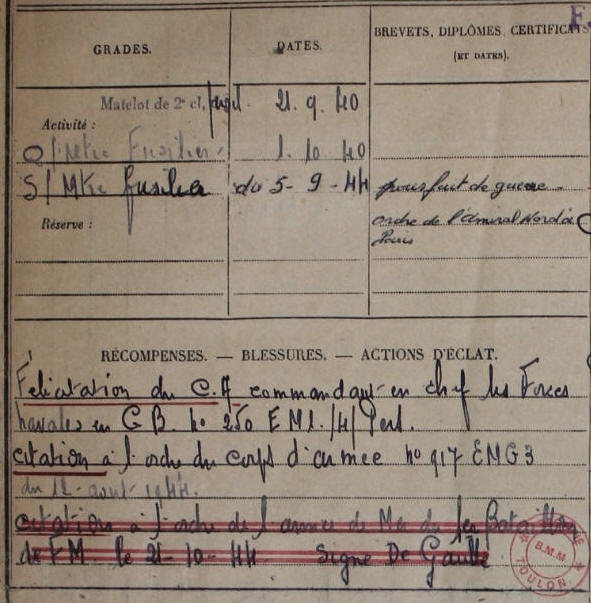 GRADES.
DATES.
BREVETS, DIPLÔMES, CERTIFICATS
(ET DATES).
Matelot de 2e cl,
21. 9. 40
Activité :
Fusilier
1. 10. 40
S/Mtre fusilier du 5-9-44 pour fait de guerre -
ordre de l'Amiral
Paris
Réserve :
RÉCOMPENSES. — BLESSURES. — ACTIONS D'ÉCLAT.
Félicitation du C.A commandant en chef les Forces
navales en G B. no 250 EM1./4/Pers.
citation à l'ordre du corps d'armée no 917 EMG3
du 12 aout 1944.
citation à l'ordre de l'armée de Mer du 1er Bataillon
de FM le 21-10-44 Signe De Gaulle
B.M.M
TOULON